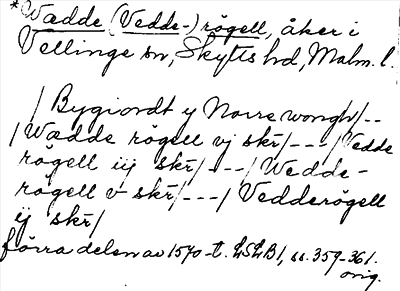 *Wædde (Vedde-) rögell, åker i
Vellinge sn, Skytts hd, Malm. l.
/ Bygiordt y Norre wongh/--
/Wædde rögell vj skr/---/Vedde
rögell iij skr/---/Wedde-
rögell v skr/---/Vedderögell
ij skr/
förra delen av 1570-t. LSLB1, ss. 359-361.
orig.